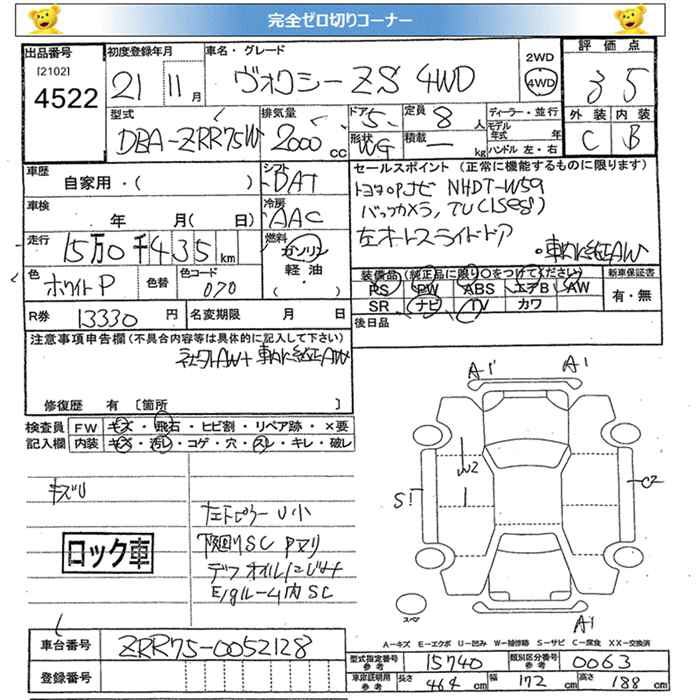 完全ゼロ切りコーナー
出品番号
[2102]
4522
初度登録年月
21年11月
車名・グレード
ヴォクシー ZS 4WD
2WD
4WD
評価点
3 5
外装 内装
C B
型式
DBA-ZRR75W
排気量
2000cc
ドア 5
形状 WG
定員 8人
積載 ー kg
ディーラー・並行
モデル年式 年
ハンドル 左・右
車歴
自家用・( )
シフト
DAT
セールスポイント (正常に機能するものに限ります)
トヨタOPナビ NHDT-W59
バックカメラ, TV(1seg)
左オートスライドドア
車内に純正AW
車検
年 月( 日)
冷房
AAC
走行
15万0千435km
燃料
ガソリン
軽油
( ・ )
色
ホワイトP
色替
色コード
070
装備品(純正品に限り○をつけてください)
新車保証書
PS PW ABS エアB AW
有・無
SR ナビ TV カワ
R券 13330円
名変期限 月 日
後日品
注意事項申告欄(不具合内容等は具体的に記入して下さい)
社外AW+車内に純正AW
修復歴 有 [箇所 ]
検査員記入欄
FW キズ・飛石・ヒビ割・リペア跡・×要
内装 キズ・汚レ・コゲ・穴・スレ・キレ・破レ
キズU
ロック車
左Fピラー U小
下廻りSC Pヌリ
デフオイルにじみ
E/gルーム内SC
A1
A1
W2
S1
C2
A1
スペア
A-キズ E-エクボ U-凹み W-補修跡 S-サビ C-腐食 XX-交換済
車台番号
ZRR75-0052128
登録番号
型式指定番号 参考 15740
類別区分番号 参考 0063
車庫証明用 参考 長さ 464cm 幅 172cm 高さ 188cm